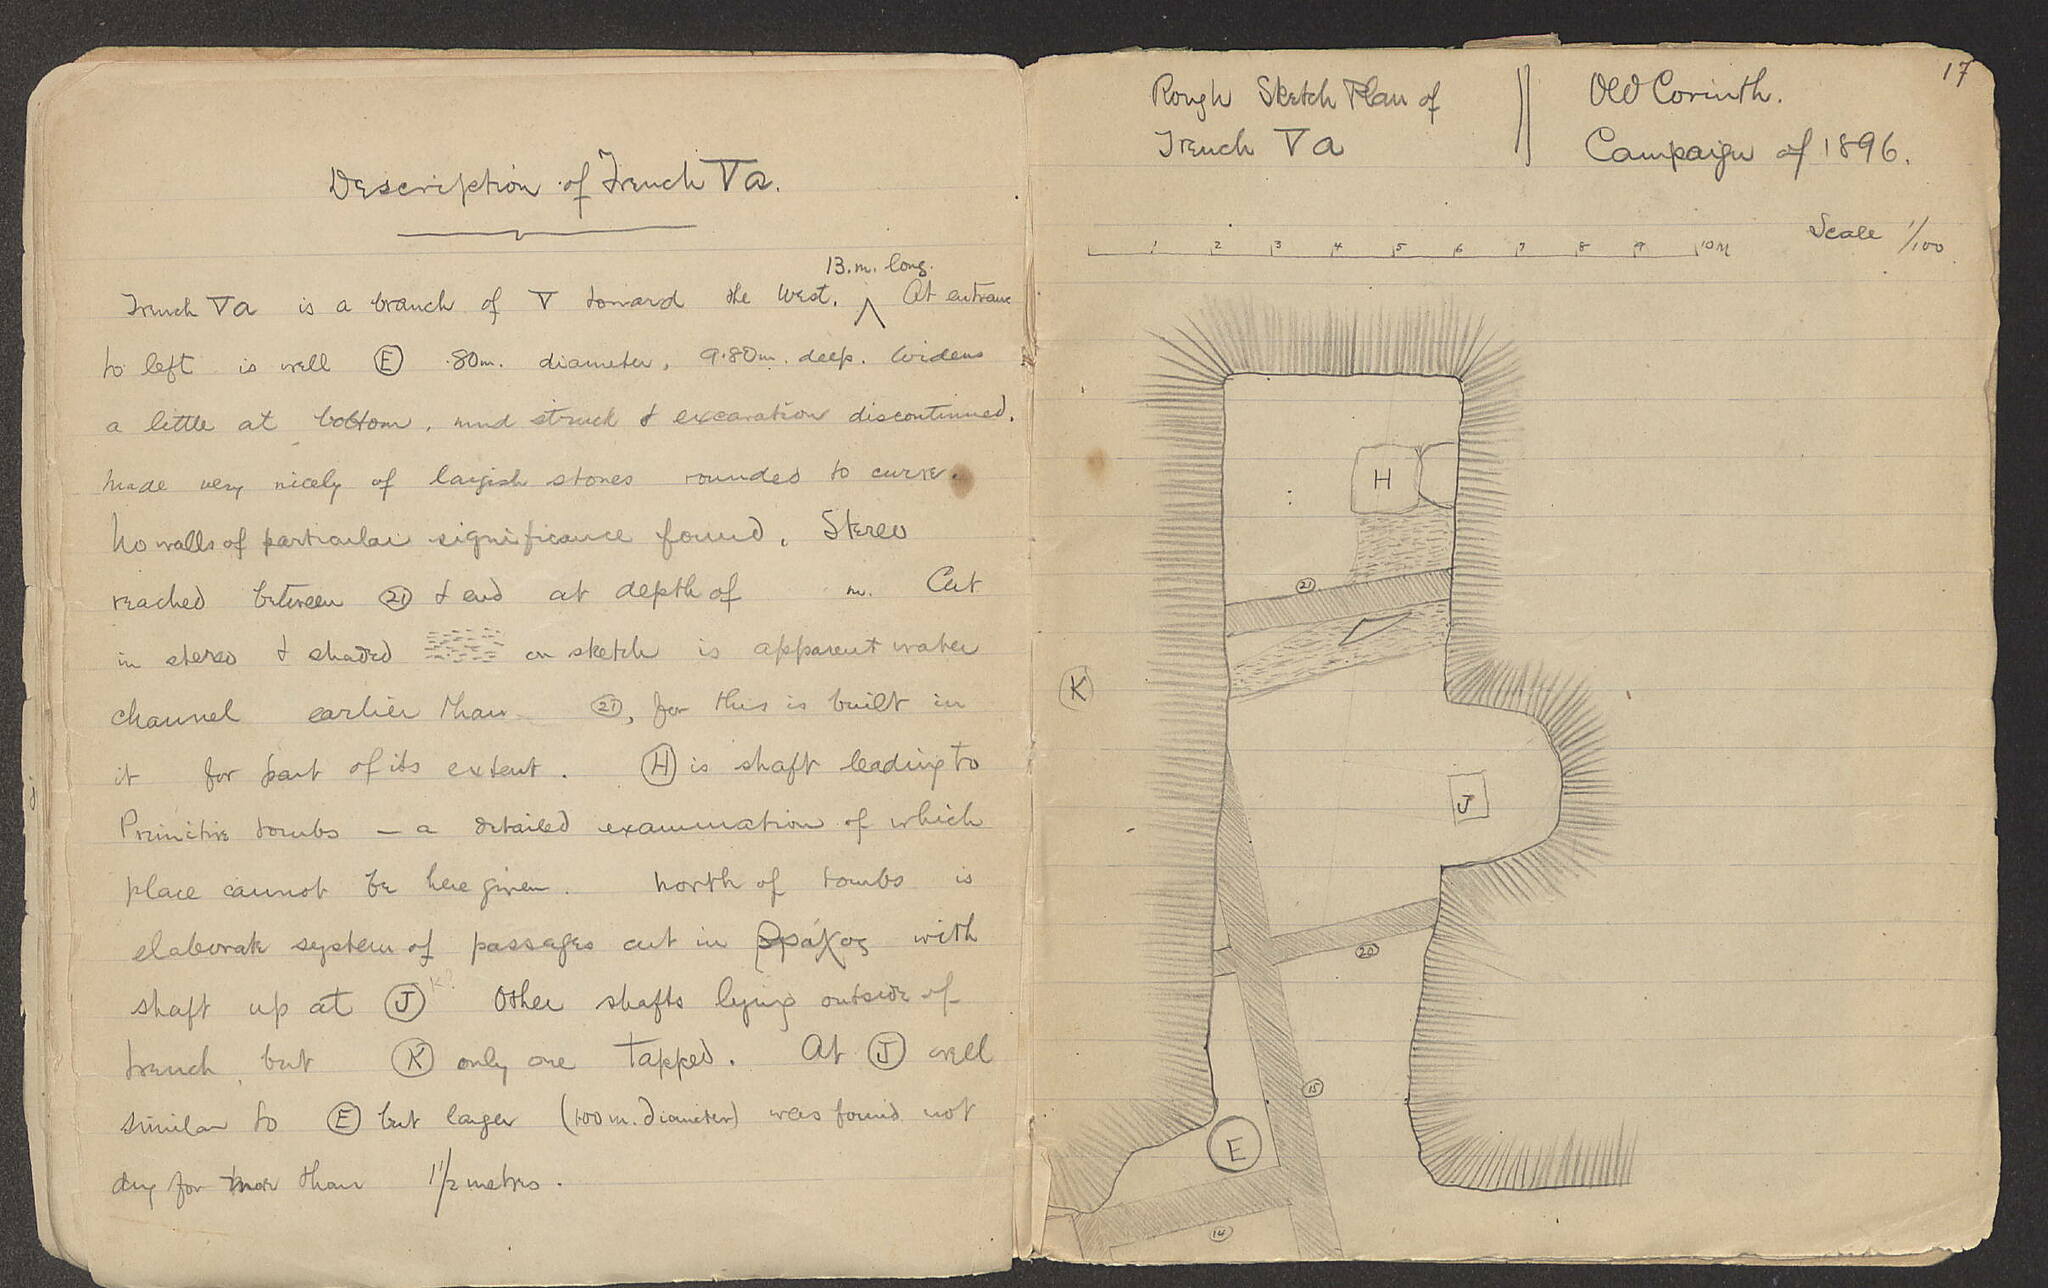 Description of Trench Va.
13.m. long.
Trench Va is a branch of V toward the West. ⋀ At entrance
to left is well Ⓔ .80m. diameter, 9.80m. deep. Widens
a little at bottom, mud struck & excavation discontinued.
Made very nicely of largish stones rounded to curve.
No walls of particular significance found. Stereo
reached between ㉑ & end at depth of m. Cut
in stereo & shaded on sketch is apparent water
channel earlier than ㉑, for this is built in
it for part of its extent. Ⓗ is shaft leading to
Primitive tombs — a detailed examination of which
place cannot be here given. North of tombs is
elaborate system of passages cut in βράχος with
shaft up at Ⓙ K? Other shafts lying outside of
trench, but Ⓚ only one tapped. At Ⓙ well
similar to Ⓔ but larger (1.00 m. diameter) was found not
dug for more than 1 1/2 metres.
17
Rough Sketch Plan of
Trench Va
Old Corinth.
Campaign of 1896.
Scale 1/100
1 2 3 4 5 6 7 8 9 10M
H
㉑
K
J
⑳
⑮
E
⑭